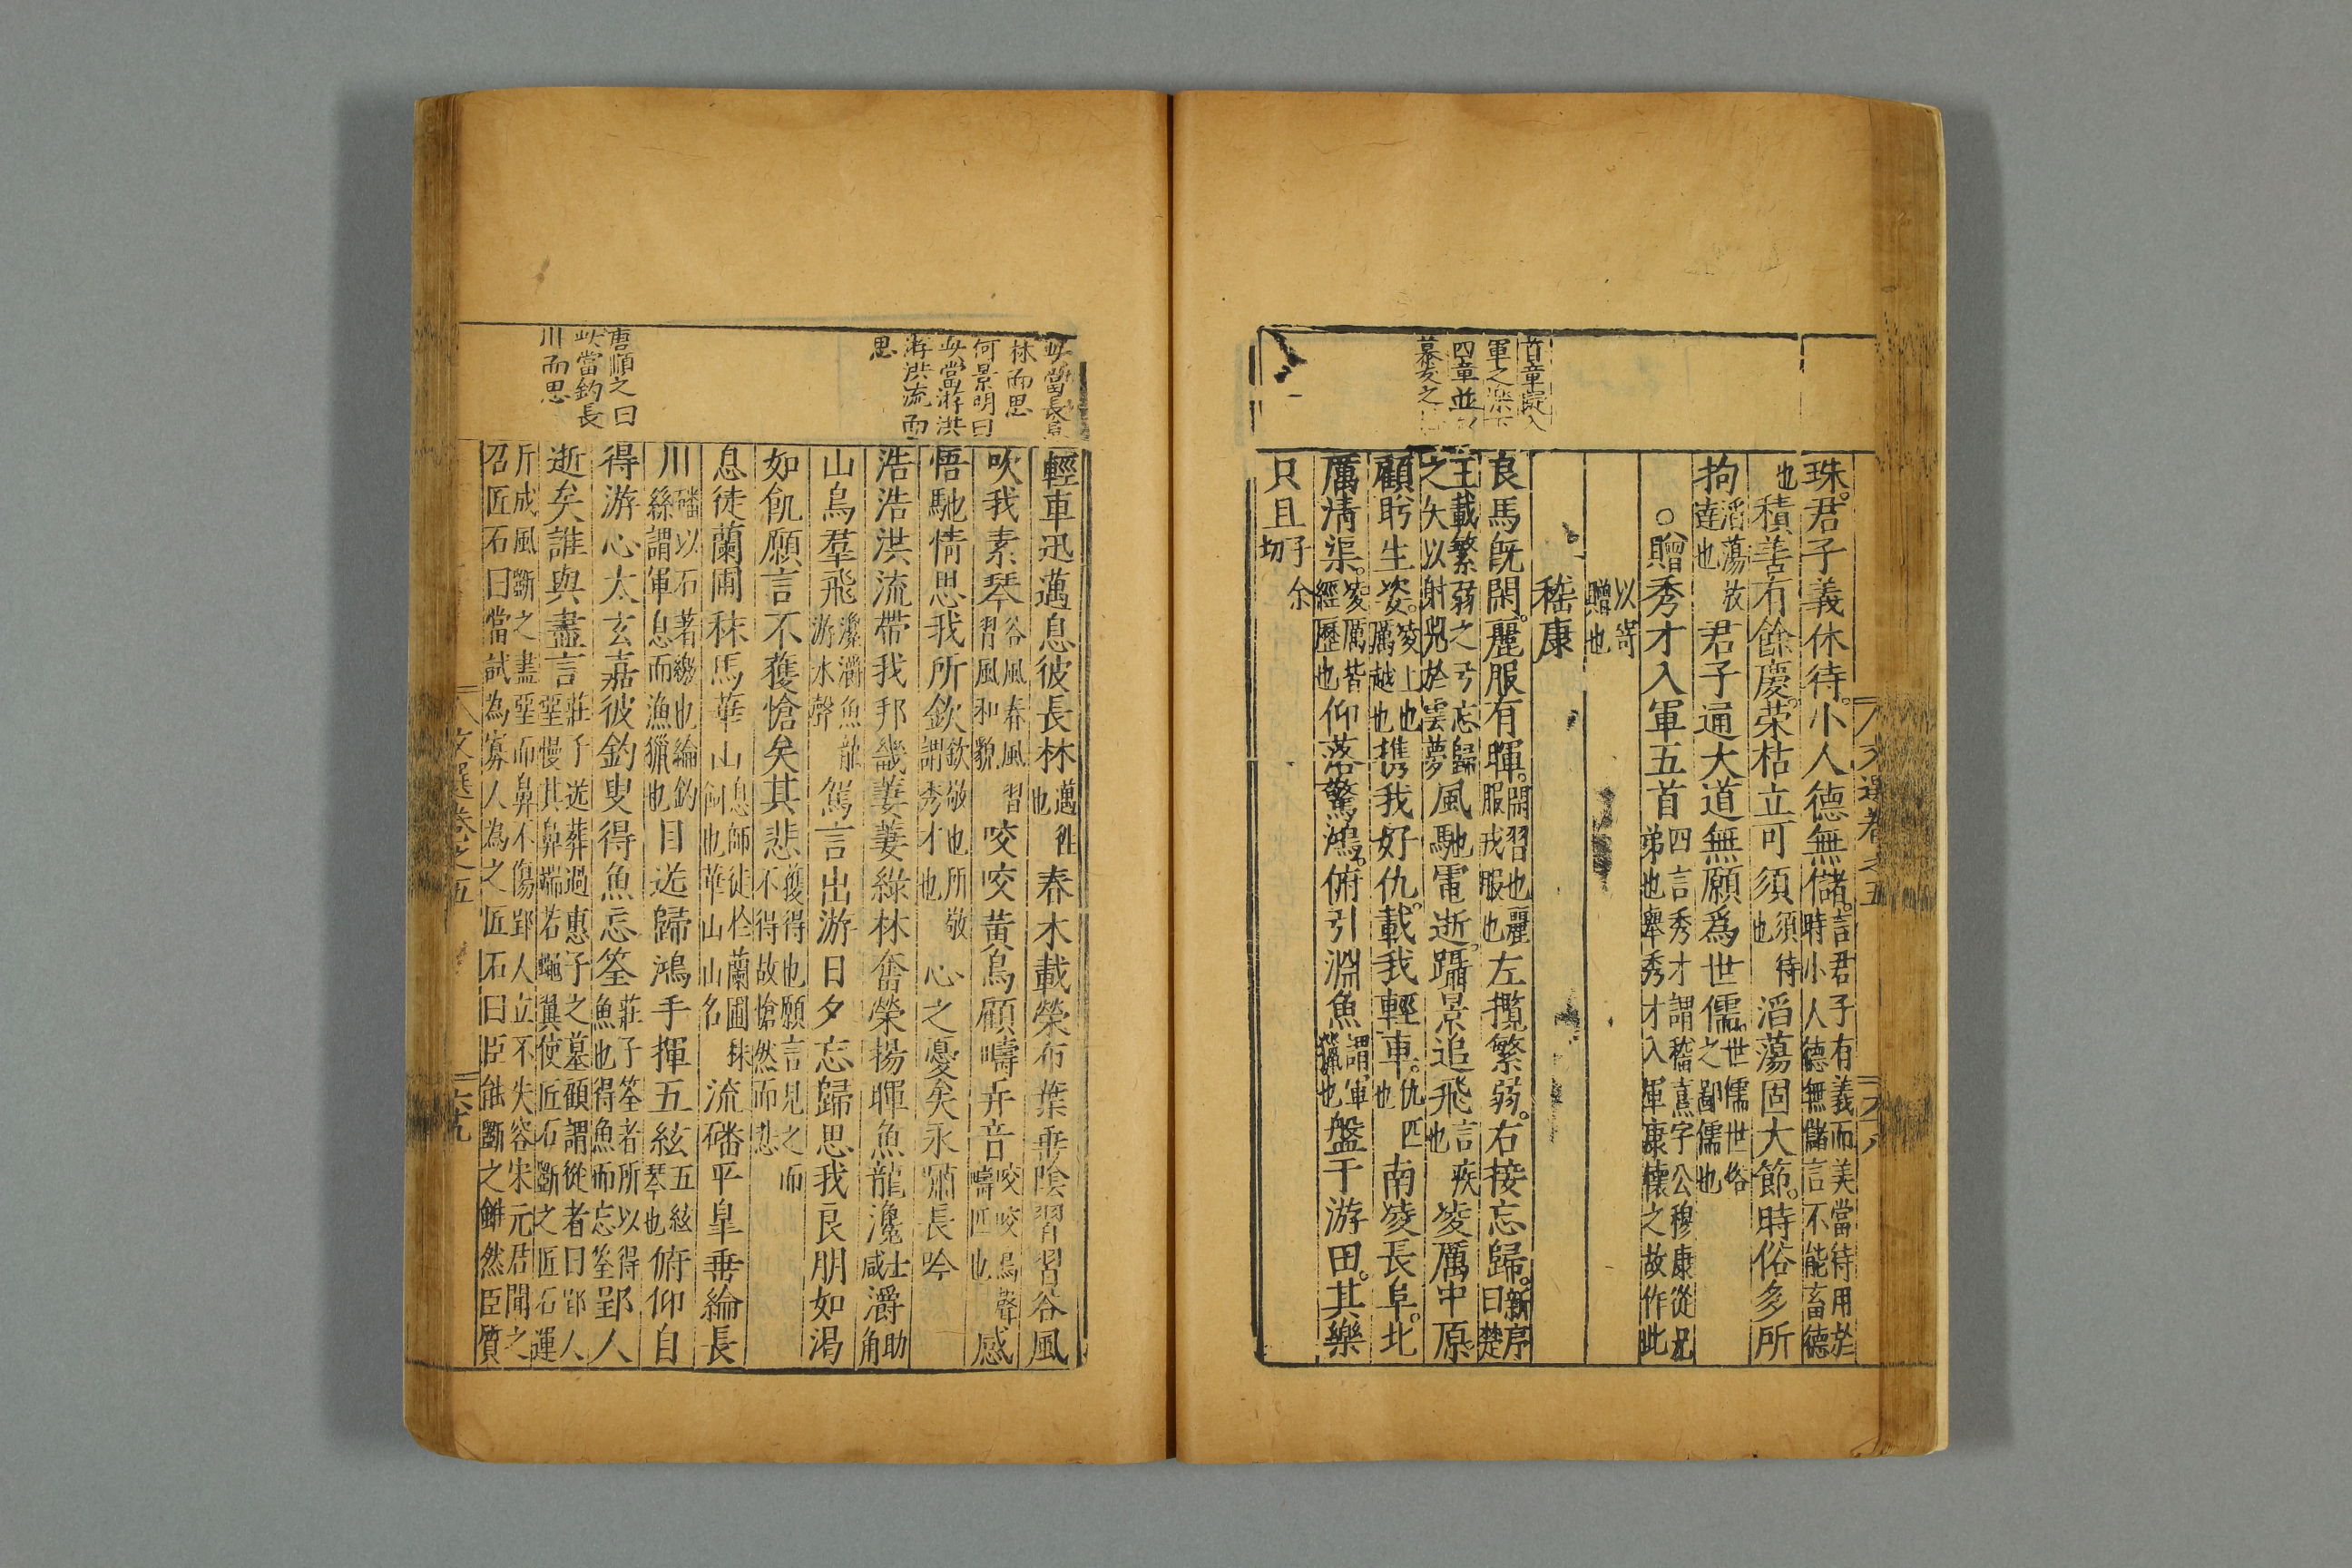 珠君子義休待小人德無儲言君子有義而美當待用於時小人德無儲言不能畜德
也積善有餘慶荣枯立可須須待也滔蕩固大節時俗多所
拘滔蕩放逹也君子通大道無願爲世儒世儒世俗之鄙儒也
○贈秀才入軍五首四言秀才謂嵇熹字公穆康從兄弟也舉秀才入軍康懷之故作此
以寄贈也
嵇康
良馬旣閑麗服有暉閑習也麗服戎服也左攬繁弱右接忘歸新序曰楚
王載繁弱之弓忘歸之矢以射兕於雲夢風馳電逝躡景追飛言疾也凌厲中原
顧盻生姿凌上也厲越也携我好仇載我輕車仇匹也南凌長阜北
厲清渠凌厲皆經歷也仰落驚鴻俯引淵魚謂軍獵也盤于游田其樂
只且子余切
首章
軍之
四章並
慕友之
文選卷之五
六十八
輕車迅邁息彼長林邁徃也春木載榮布葉垂陰習習谷風
吹我素琴谷風春風習習風和貌咬咬黃鳥顧疇弄音咬咬鳥聲疇匹也感
悟馳情思我所欽欽敬也所敬謂秀才也心之憂矣永嘯長吟
浩浩洪流帶我邦畿萋萋綠林奮榮揚暉魚龍瀺士咸灂助角
山鳥羣飛瀺灂魚龍游水聲駕言出游日夕忘歸思我良朋如渴
如飢願言不獲愴矣其悲獲得也願言見之而不得故愴然而悲
息徒蘭圃秣馬華山息師徒於蘭圃秣飼也華山山名流磻平臯垂綸長
川磻以石著繳也綸釣絲謂軍息而漁獵也目送歸鴻手揮五絃五絃琴也俯仰自
得游心太玄嘉彼釣叟得魚忘筌莊子筌者所以得魚也得魚而忘筌郢人
逝矣誰與盡言莊子送葬過惠子之墓顧謂從者曰郢人堊慢其鼻端若蠅翼使匠石斲之匠石運
斤成風斲之盡堊而鼻不傷郢人立不失容宋元君聞之召匠石曰當試為寡人為之匠石曰臣能斲之雖然臣質
此當長
林而思
何景明曰
此當游洪
游洪流而
思
唐順之曰
此當釣長
川而思
文選卷之五
六九